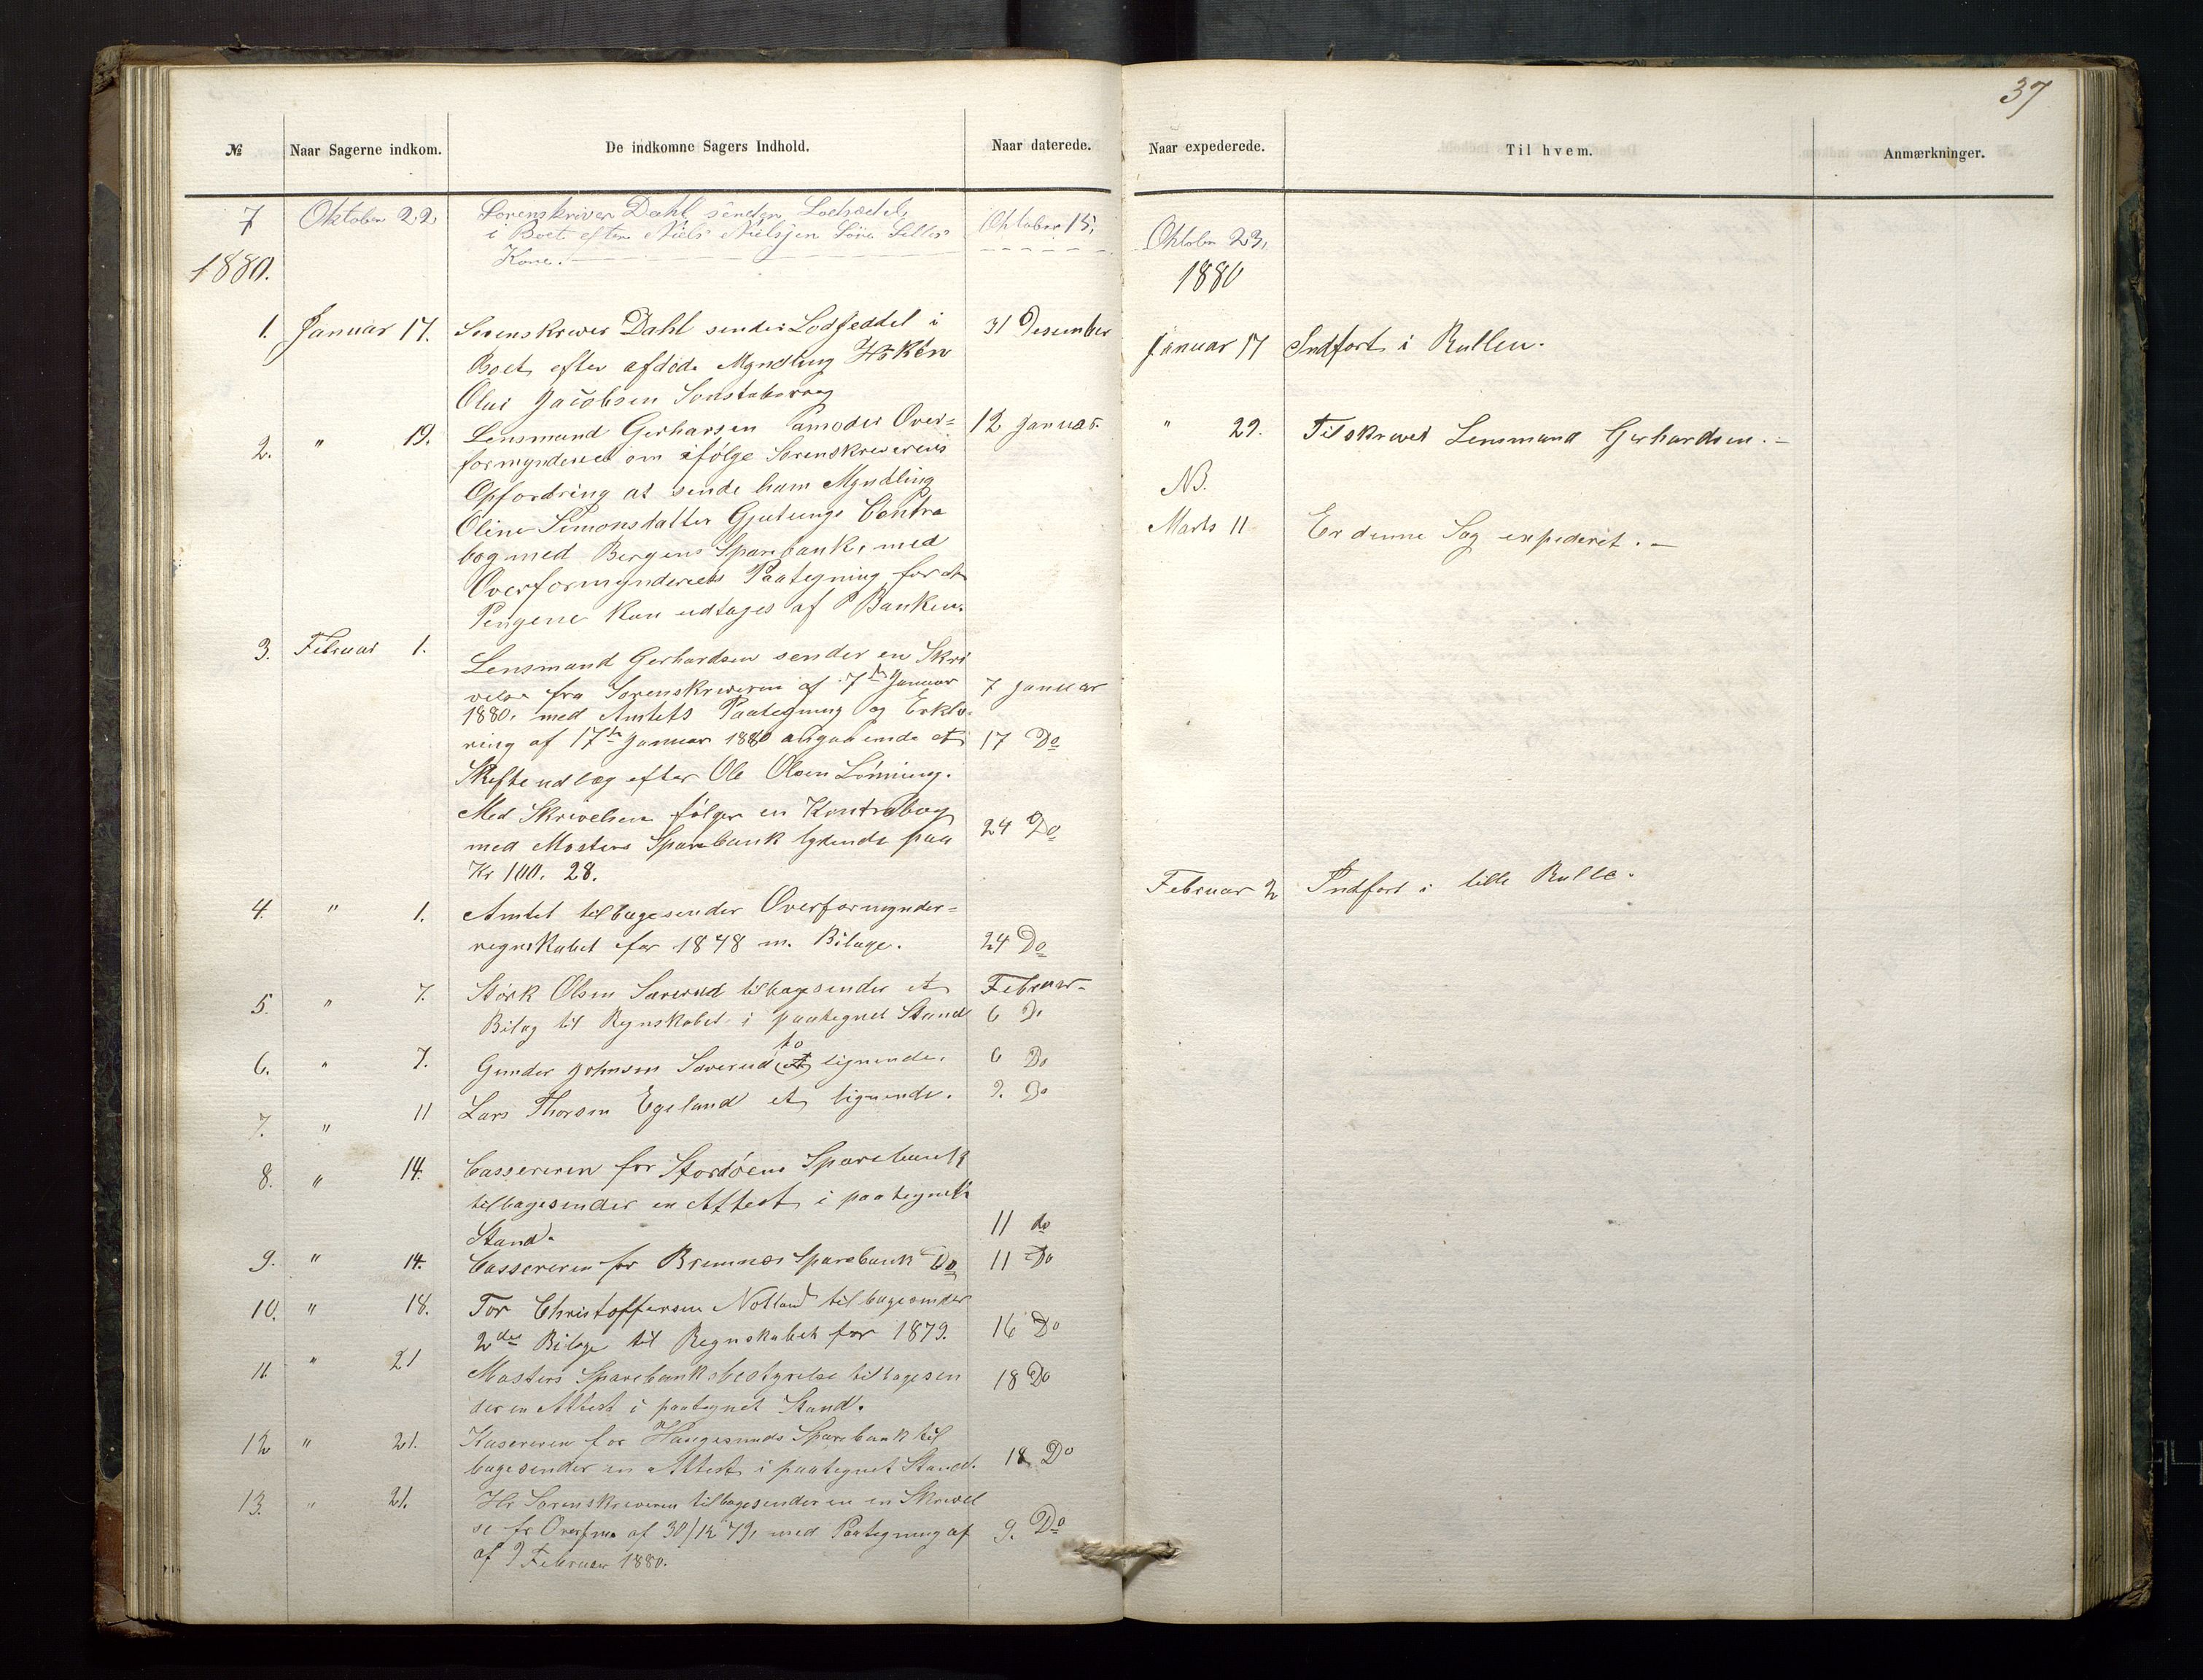 37
№ Naar Sagerne indkom. De indkomne Sagers Indhold. Naar daterede. Naar expederede. Til hvem. Anmærkninger.
7 Oktober 22 Sorenskriver Dahl sender Lodseddel Oktober 15, Oktober 23,
i Boet efter Niels Nielsen
Kone.
1880. 1880
1. Januar 17. Sorenskriver Dahl sender Lodseddel i 31 Desember Januar 17 Indført i Rullen.
Boet efter afdøde Myndling Håkon
Olai Jacobsen
2. " 19. Lensmand Gerharsen anmoder Over= 12 Januar " 29. Tilskrevet Lensmand Gerhardsen.
formynderiet om ifølge Sorenskriverens
Opfordring at sende ham Myndling NB.
Oline Simonsdatter Contra
bog med Bergens Sparebank, med Marts 11 Er denne Sag expederet.
Overformynderiets Paategning for at
Pengene kan udtages af Banken.
3. Februar 1. Lensmand Gerhardsen sender en Skri
velse fra Sorenskriveren af 7de Januar 7 Januar
1880. med Amtets Paategning og Erklæ
ring af 17de Januar 1880 angaaende et 17 Do
Skifteudlæg efter Ole Olsen Lønning.
Med Skrivelsen følger en Kontrabog
med Mosters Sparebank lydende paa 24 Do
Kr 100. 28. Februar 2 Indført i lille Rulle.
4. " 1. Amtet tilbagesender Overformynder=
regnskabet for 1878 m. Bilage. 24 Do
5. " 7. Størk Olsen Sæverud tilbagesender et Februar
Bilag til Regnskabet i paategnet Stand 6 Do
6. " 7. Gunder Johnsen Sæverud to et lignende. 6 Do
7. " 11 Lars Thorsen Egeland et lignende. 9. Do
8. " 14. Cassereren for Stordøens Sparebank
tilbagesender en Attest i paategnet
Stand. 11 do
9. " 14. Cassereren for Bremnes Sparebank Do 11 Do
10. " 18. Tor Christoffersen Notland tilbagesender
2de Bilage til Regnskabet for 1879. 16 Do
11. " 21 Mosters Sparebanksbestyrelse tilbagesen 18 Do
der en Attest i paategnet Stand.
12 " 21. Kasereren for Haugesunds Sparebank til
bagesender en Attest i paategnet Stand. 18 Do
13. " 21. Hr Sorenskriveren tilbagesender en en Skrivel
se fr Overfmn af 30/12 79, med Paategning af 9. Do
af 9 Februar 1880.